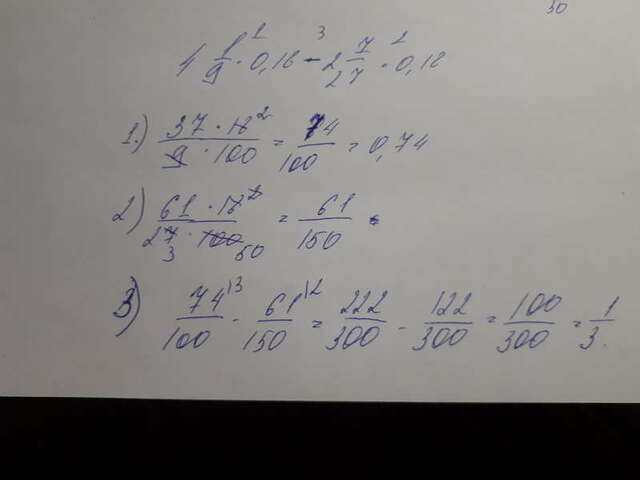 30
4 1/9 · 0,18 - 2 7/27 · 0,18
1.) 37 · 18 / 9 · 100 = 74/100 = 0,74
2) 61 · 18 / 27 · 100 = 61/150
3) 74/100 - 61/150 = 222/300 - 122/300 = 100/300 = 1/3.